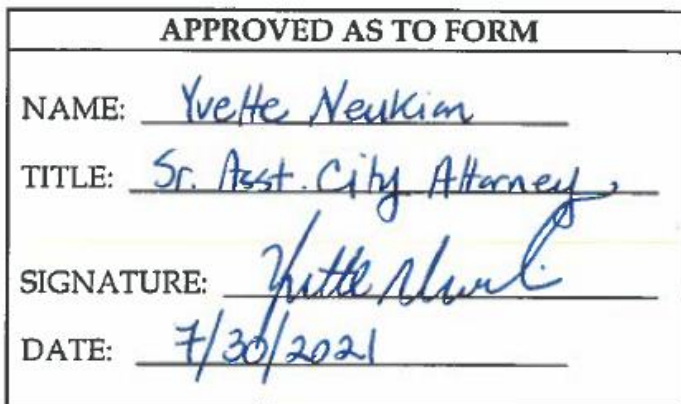 APPROVED AS TO FORM
NAME: Yvette Neukian
TITLE: Sr. Asst. City Attorney
SIGNATURE:
DATE: 7/30/2021